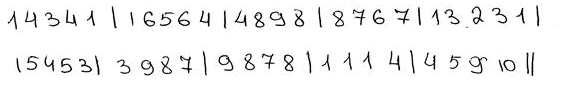 1 4 3 4 1 | 1 6 5 6 4 | 4 8 9 8 | 8 7 6 7 | 1 3 . 2 3 1 |
1 5 4 5 3 | 3 9 8 7 | 9 8 7 8 | 1 1 1 4 | 4 5 9 10 ||